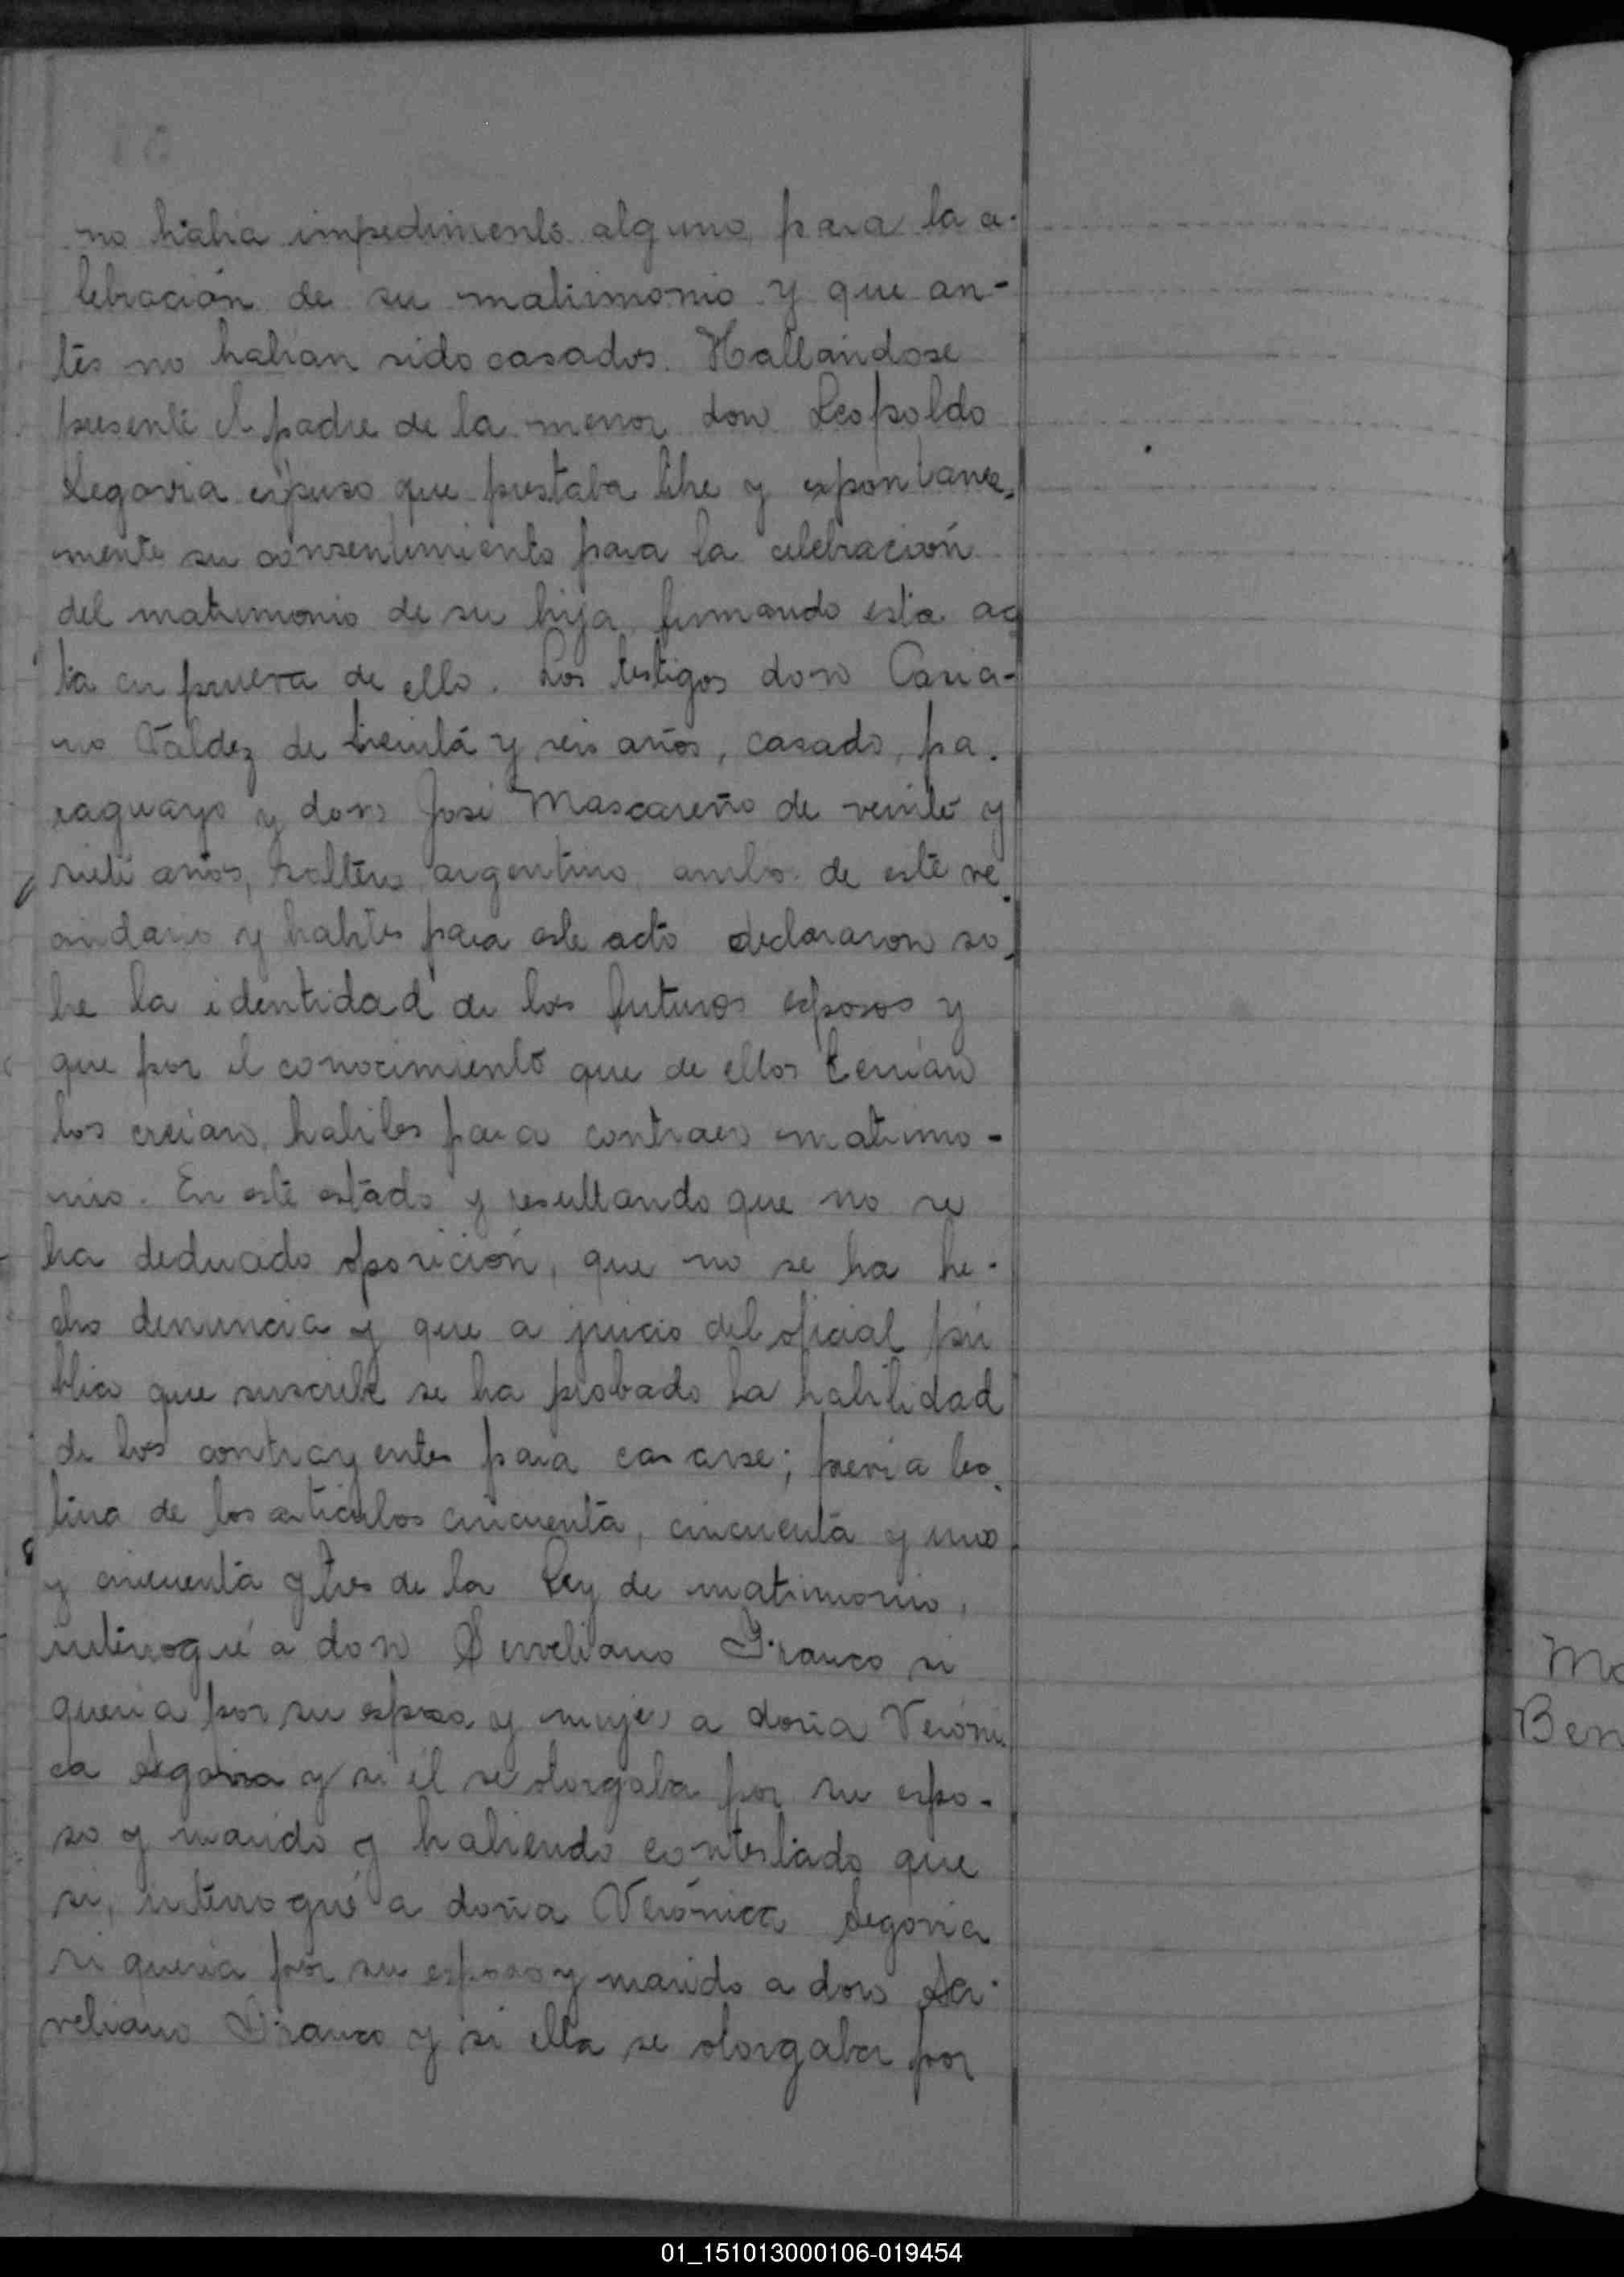 no habia impedimento alguno para la ce-
lebración de su matrimonio y que an-
tes no habían sido casados. Hallándose
presente el padre de la menor don Leopoldo
Segovia expuso que prestaba libre y expontanea-
mente su consentimiento para la celebración
del matrimonio de su hija firmando esta ac
ta en prueva de ello. Los testigos don Casia-
no Valdez de treinta y seis años, casado, pa-
raguayo y don José Mascareño de veinte y
siete años, soltero, argentino, ambos de este ve
cindario y habiles para este acto declararon so-
bre la identidad de los futuros esposos y
que por el conocimiento que de ellos tenían
los creian habiles para contraer matrimo-
nio. En este estado y resultando que no se
ha deducido oposición, que no se ha he-
cho denuncia y que a juicio del oficial pú
blico que suscribe se ha probado la habilidad
de los contrayentes para casarse; previa lec-
tura de los artículos cincuenta, cincuenta y uno
y cincuenta y tres de la Ley de matrimonio,
interrogué a don Serveliano Franco si
queria por su esposa y mujer a doña Veróni
ca Segovia y si él se otorgaba por su espo-
so y marido y habiendo contestado que
si, interrogué a doña Verónica Segovia
si queria por su esposo y marido a don Ser-
veliano Franco y si ella se otorgaba por
Ma
Ben
01_151013000106-019454